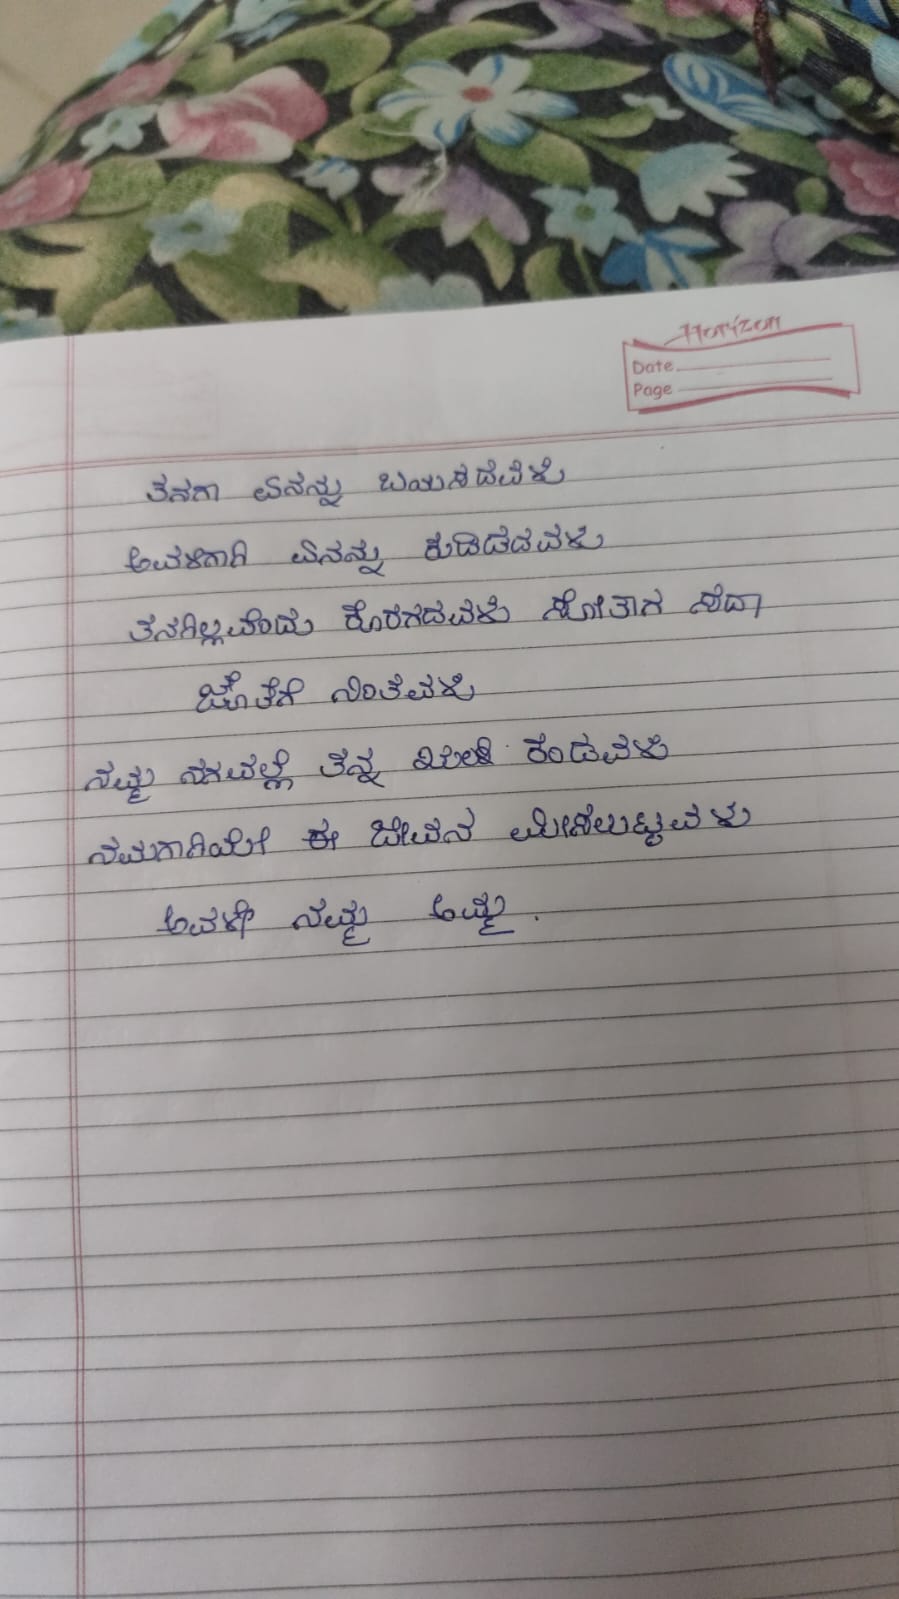 Horizon
Date
Page
ತನಗಾ ಏನನ್ನು ಬಯಸದವಳು
ಅವಳಿಗಾಗಿ ಏನನ್ನು ಕುಡಿಡದವಳು
ತನಗಿಲ್ಲವೆಂದು ಕೊರಗದವಳು ಸೋತಾಗ ಸದಾ
ಜೊತೆಗೆ ನಿಂತವಳು
ನಮ್ಮ ನಗುವಲ್ಲೆ ತನ್ನ ಖುಷಿ ಕಂಡವಳು
ನಮಗಾಗಿಯೇ ಈ ಜೀವನ ಮೀಸಲಿಟ್ಟವಳು
ಅವಳೇ ನಮ್ಮ ಅಮ್ಮ.